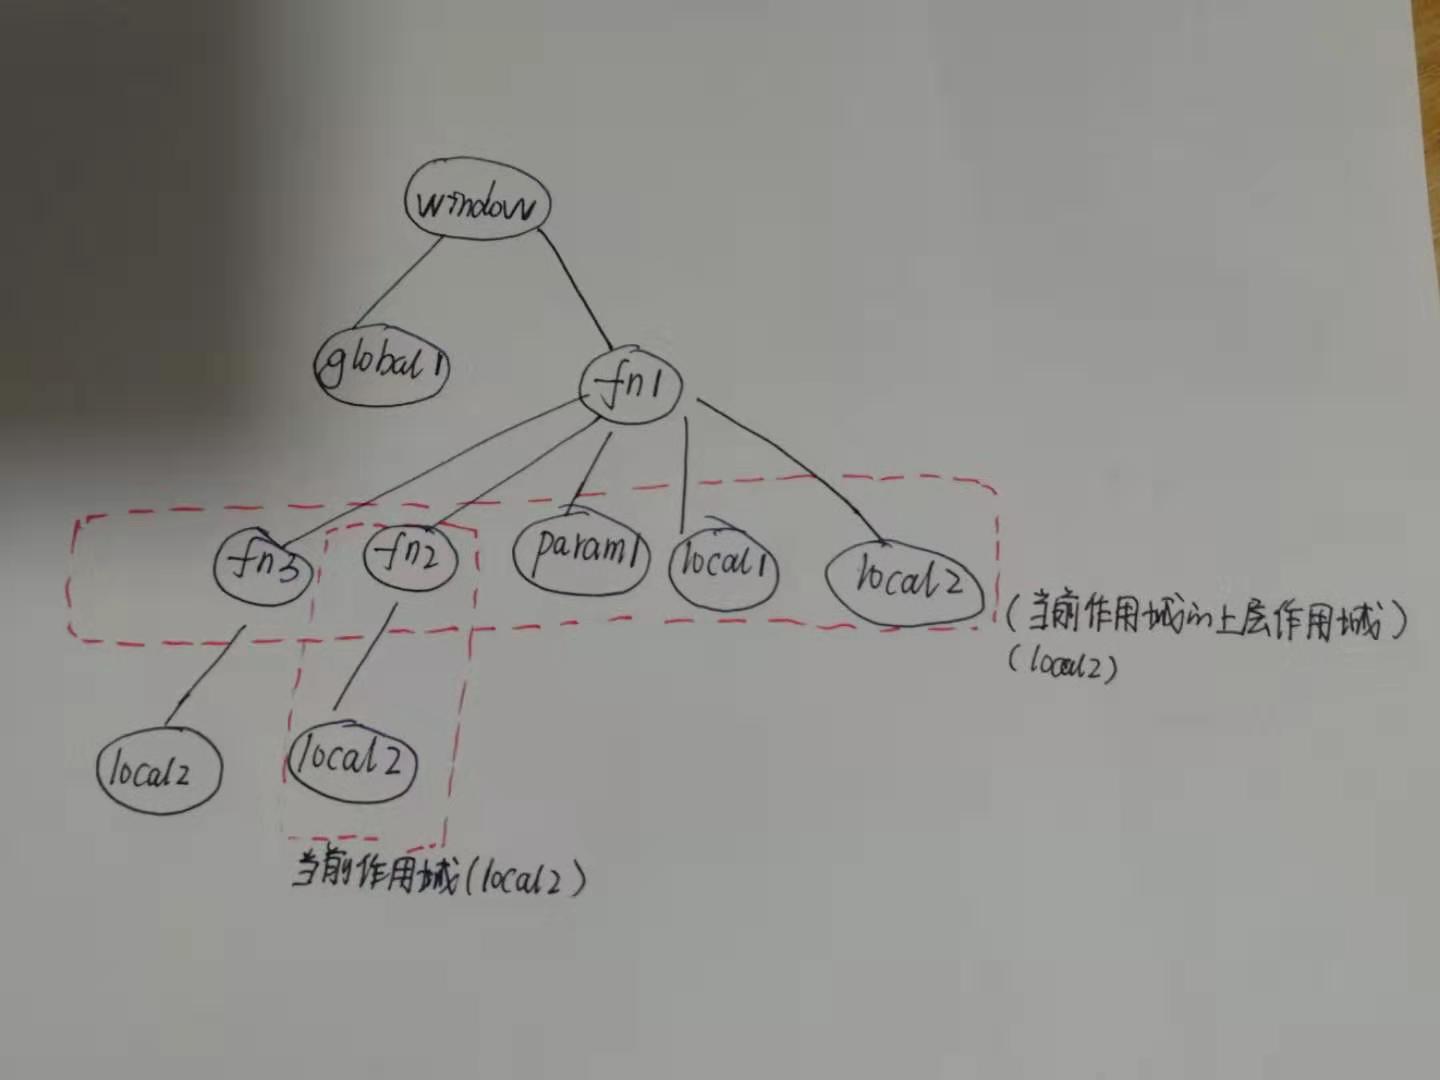 window
global1
fn1
fn3
fn2
param1
local1
local2
(当前作用域的上层作用域)
(local2)
local2
local2
当前作用域(local2)